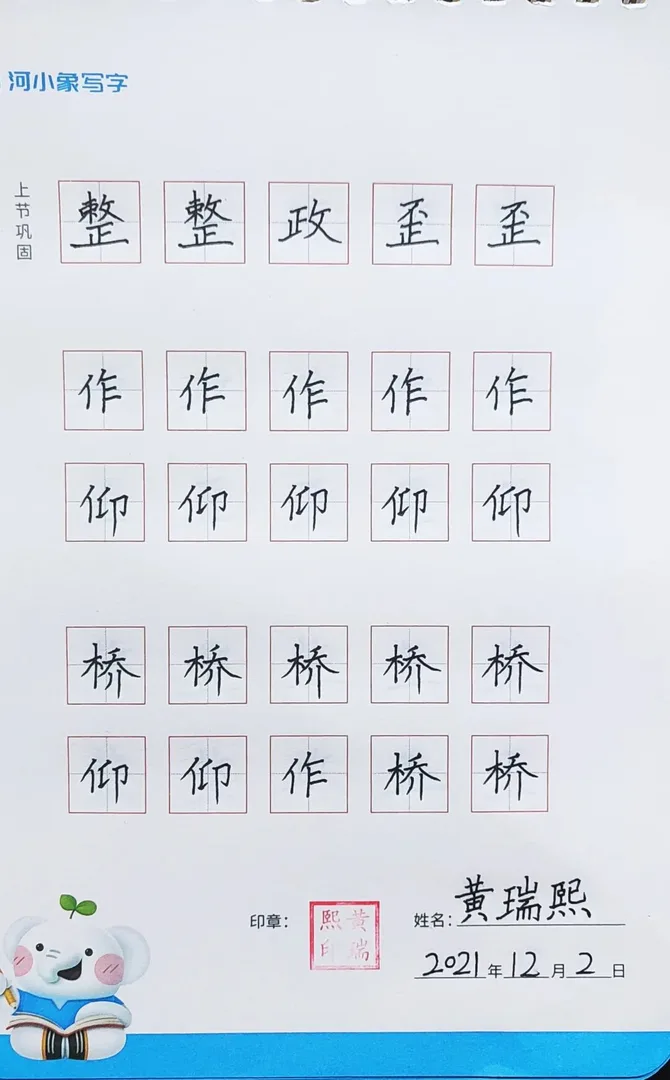 河小象写字
上节巩固
整 整 政 歪 歪
作 作 作 作 作
仰 仰 仰 仰 仰
桥 桥 桥 桥 桥
仰 仰 作 桥 桥
印章: 熙黄印瑞 姓名: 黄瑞熙
2021年12月2日